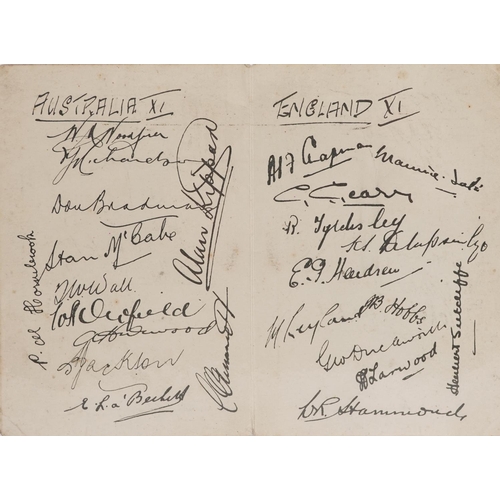 AUSTRALIA XI
V Y Richardson
Don Bradman
Stan McCabe
T W Wall
W A Oldfield
A Jackson
E. L. a'Beckett
P. M. Hornibrook
Alan Kippax
ENGLAND XI
A P F Chapman
Maurice Tate
G. Geary
R. Tyldesley
K S Duleepsinhji
E. P. Hendren
M Leyland
J B Hobbs
Geo Duckworth
H Larwood
W R Hammond
Herbert Sutcliffe